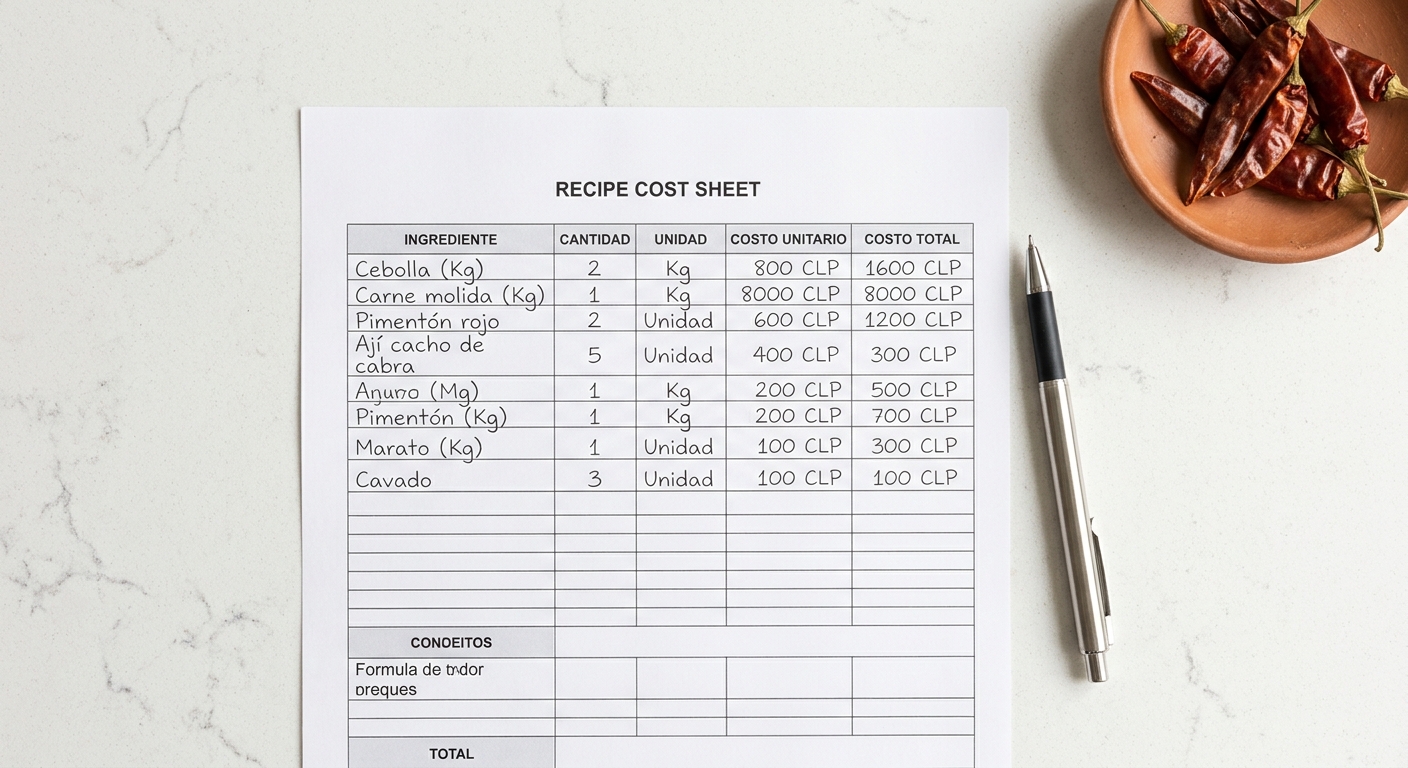 RECIPE COST SHEET
INGREDIENTE CANTIDAD UNIDAD COSTO UNITARIO COSTO TOTAL
Cebolla (Kg) 2 Kg 800 CLP 1600 CLP
Carne molida (Kg) 1 Kg 8000 CLP 8000 CLP
Pimentón rojo 2 Unidad 600 CLP 1200 CLP
Ají cacho de
cabra 5 Unidad 400 CLP 300 CLP
(Mg) 1 Kg 200 CLP 500 CLP
Pimentón (Kg) 1 Kg 200 CLP 700 CLP
Marato (Kg) 1 Unidad 100 CLP 300 CLP
Cavado 3 Unidad 100 CLP 100 CLP
CONDEITOS
Formula de
preques
TOTAL